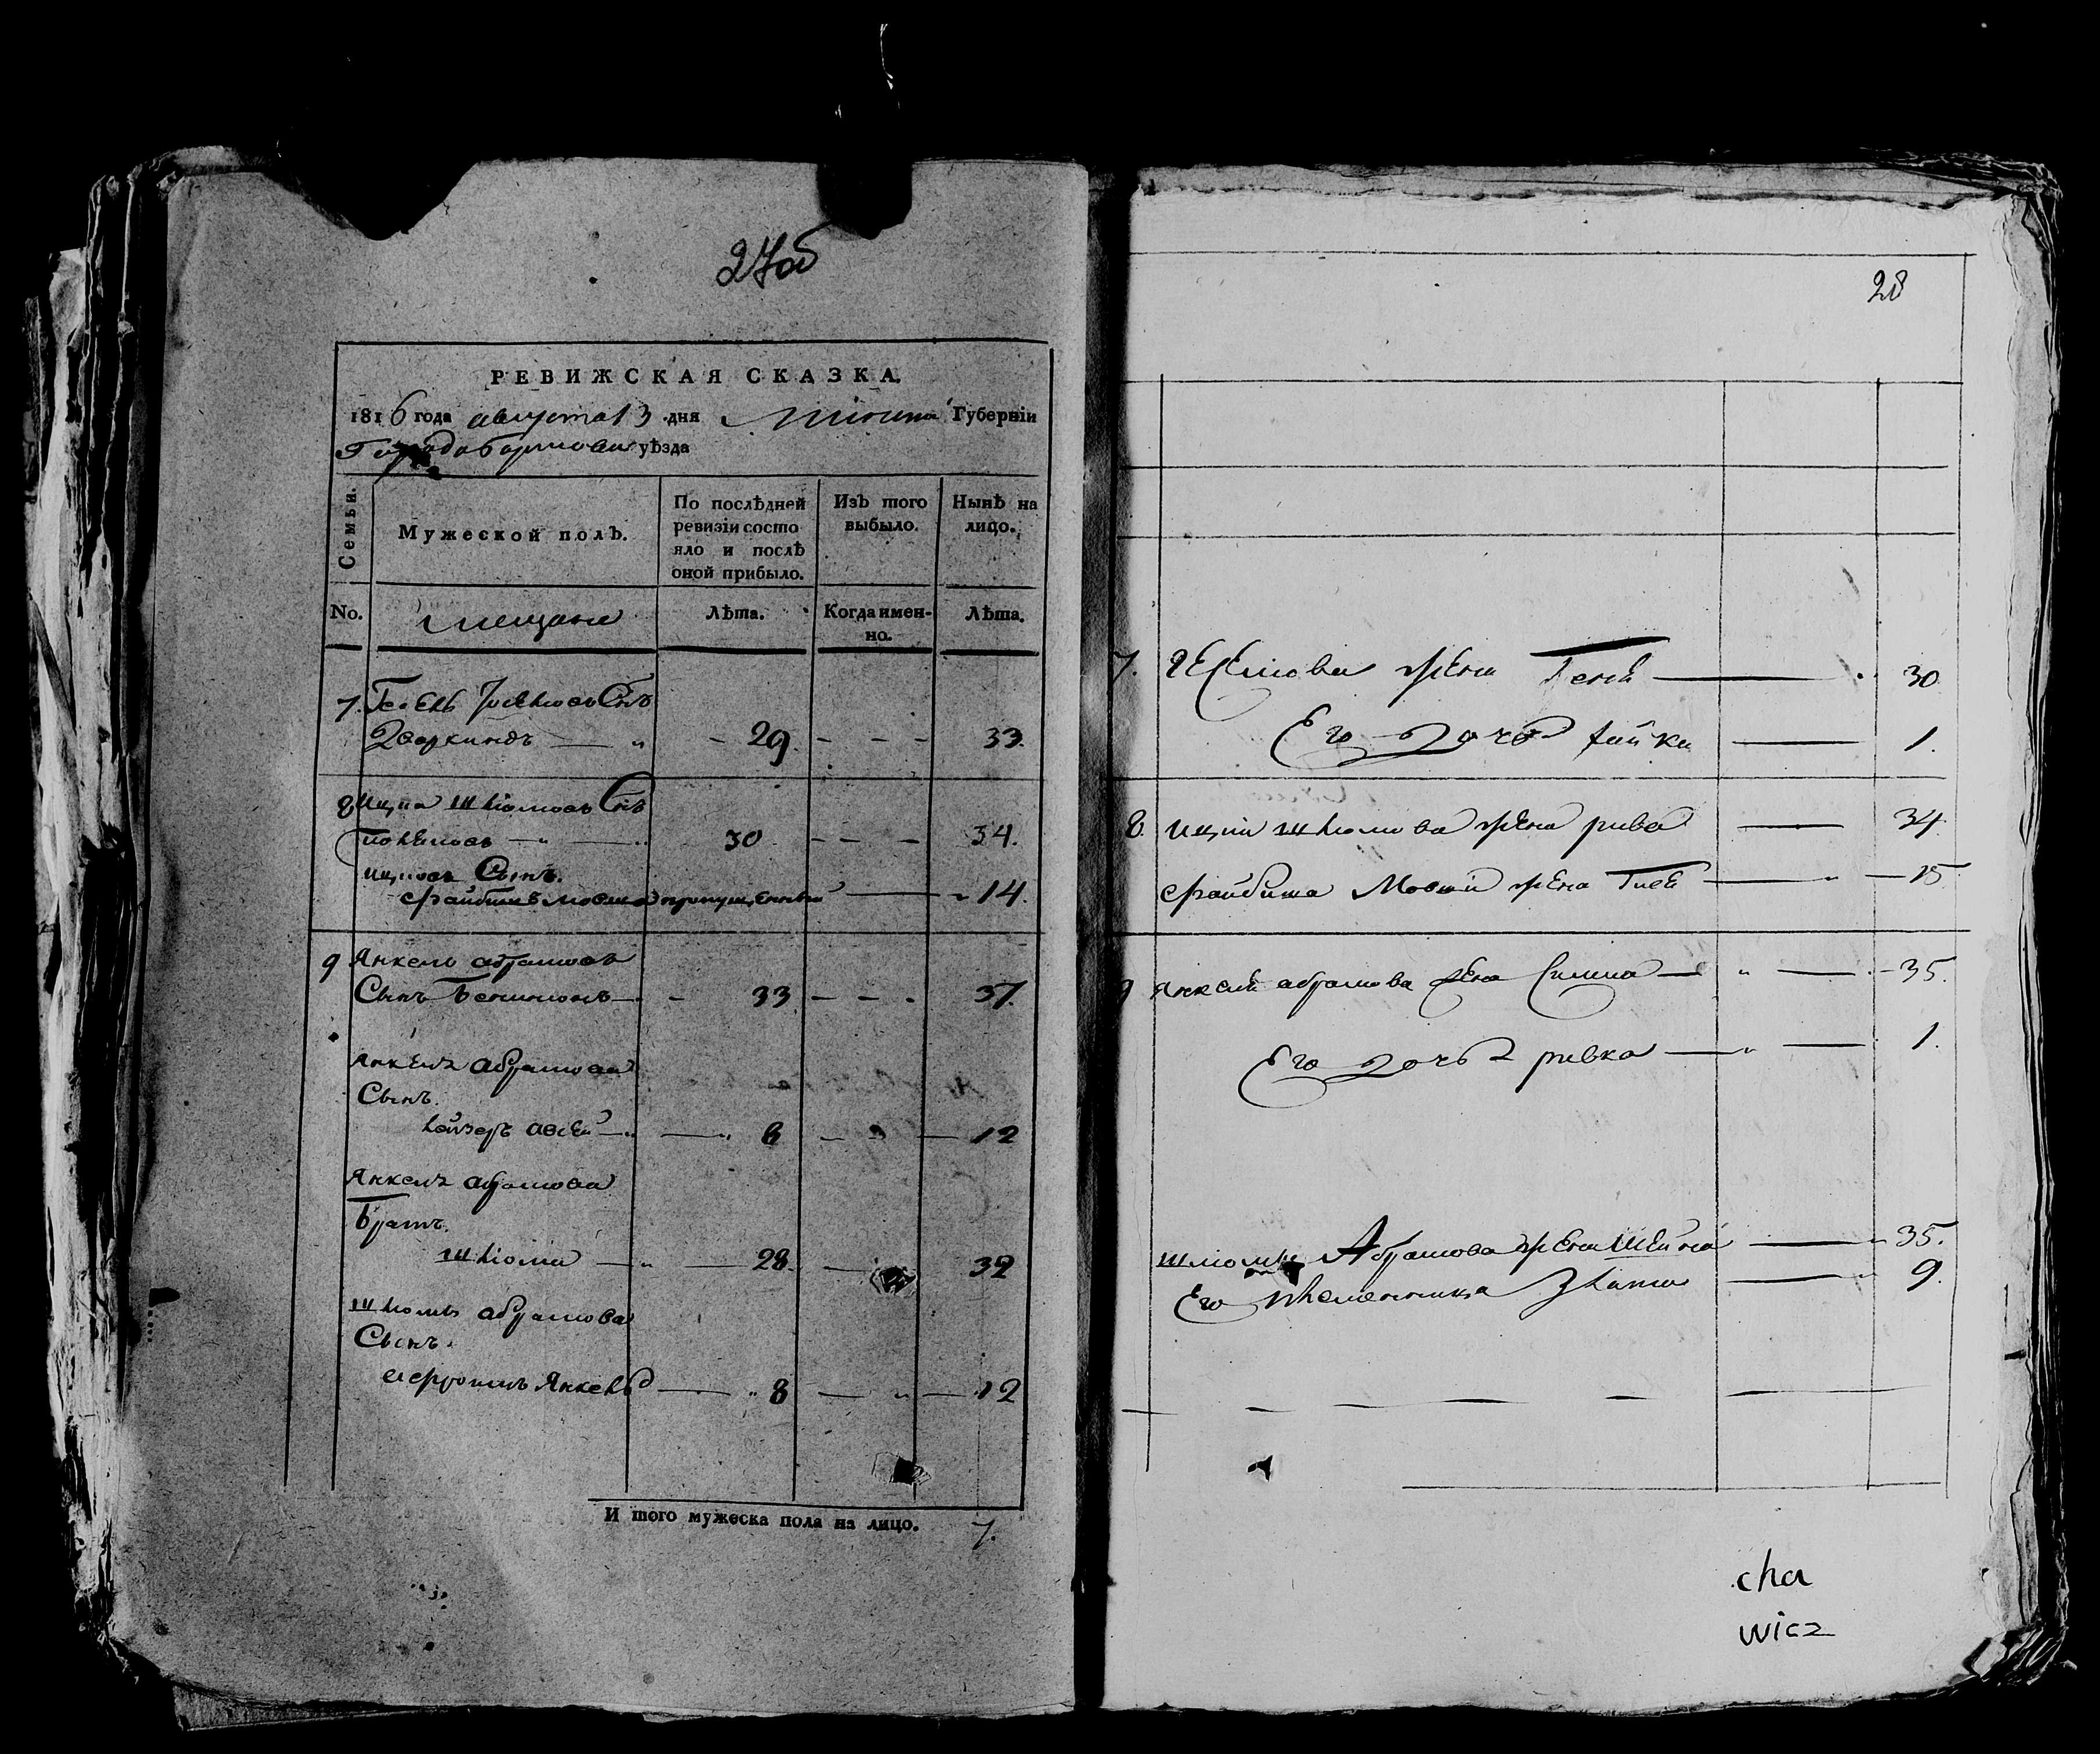 27об
РЕВИЖСКАЯ СКАЗКА.
1816 года августа 13 дня Губерніи
уѣзда
Семьи.
Мужеской полъ.
По послѣдней ревизіи состо
яло и послѣ оной прибыло.
Изъ того выбыло.
Нынѣ на лицо.
No.
мещане
Лѣта.
Когда имен-
но.
Лѣта.
7. Сынъ
29 33.
8 Ицка Шліомовъ Сынъ
30 34.
Ицковъ Сынъ.
Файбишъ Мовша пропущенный 14.
9 Янкель абрамовъ
Сынъ 33 37.
Янкеля абрамова
Сынъ.
Лейзеръ 6 12
Янкеля абрамова
Братъ.
Шліома 28 32
Шліомы абрамова
Сынъ.
Янкель 8 12
И того мужеска пола на лицо. 7.
28
7. жена 30
Его дочь 1.
8. Ицки Шліомова жена рива 34.
Файбиша Мовши жена 15
9 Янкеля абрамова жена 35.
Его дочь ривка 1.
Шліомы Абрамова жена Шейна 35.
Его племенница Злата 9.
cha
wicz